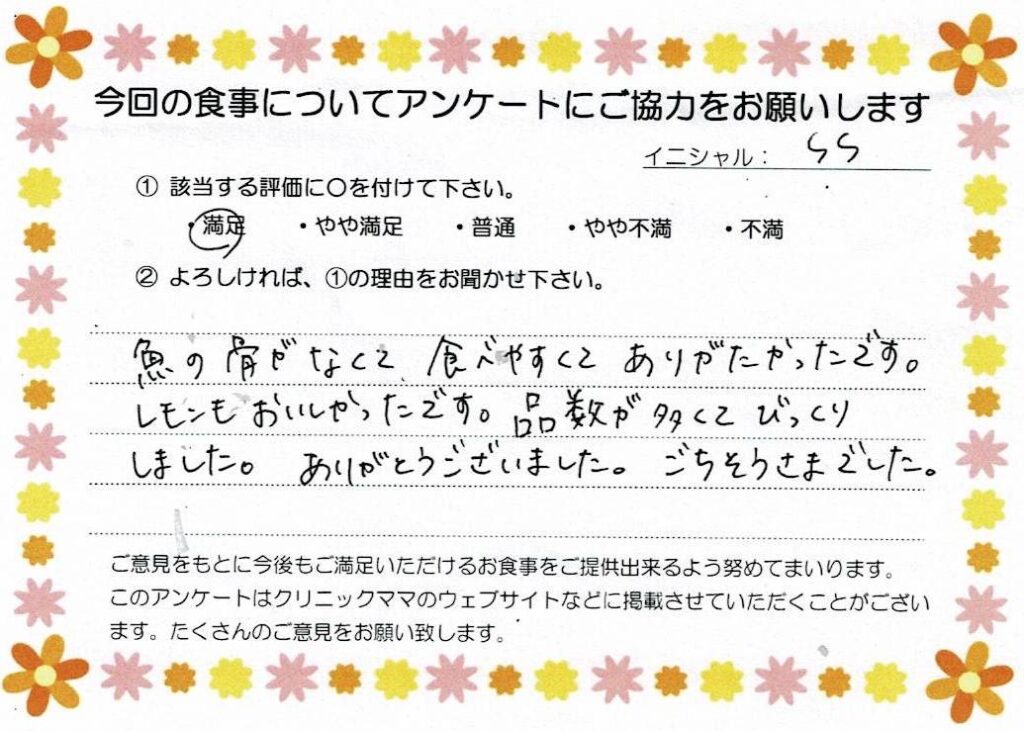 今回の食事についてアンケートにご協力をお願いします
イニシャル： SS
① 該当する評価に〇を付けて下さい。
・満足 ・やや満足 ・普通 ・やや不満 ・不満
② よろしければ、①の理由をお聞かせ下さい。
魚の骨がなくて 食べやすくて ありがたかったです。
レモンもおいしかったです。品数が多くてびっくり
しました。 ありがとうございました。 ごちそうさまでした。
ご意見をもとに今後もご満足いただけるお食事をご提供出来るよう努めてまいります。
このアンケートはクリニックママのウェブサイトなどに掲載させていただくことがござい
ます。たくさんのご意見をお願い致します。